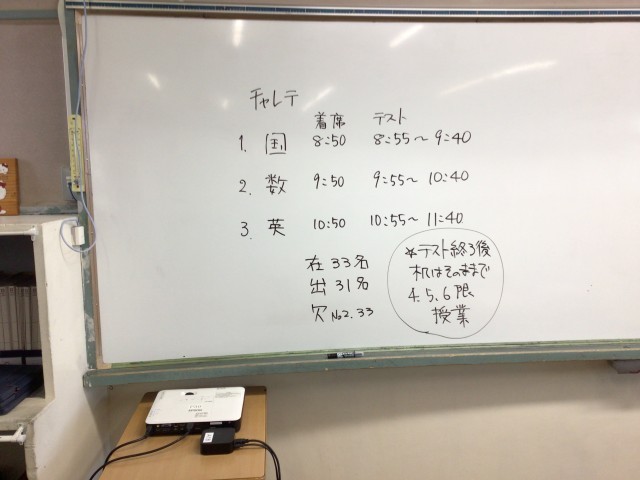 チャレテ
着席 テスト
1. 国 8:50 8:55〜 9:40
2. 数 9:50 9:55〜 10:40
3. 英 10:50 10:55〜 11:40
在 33名
出 31名
欠 No2.33
※テスト終了後
机はそのままで
4.5.6限
授業